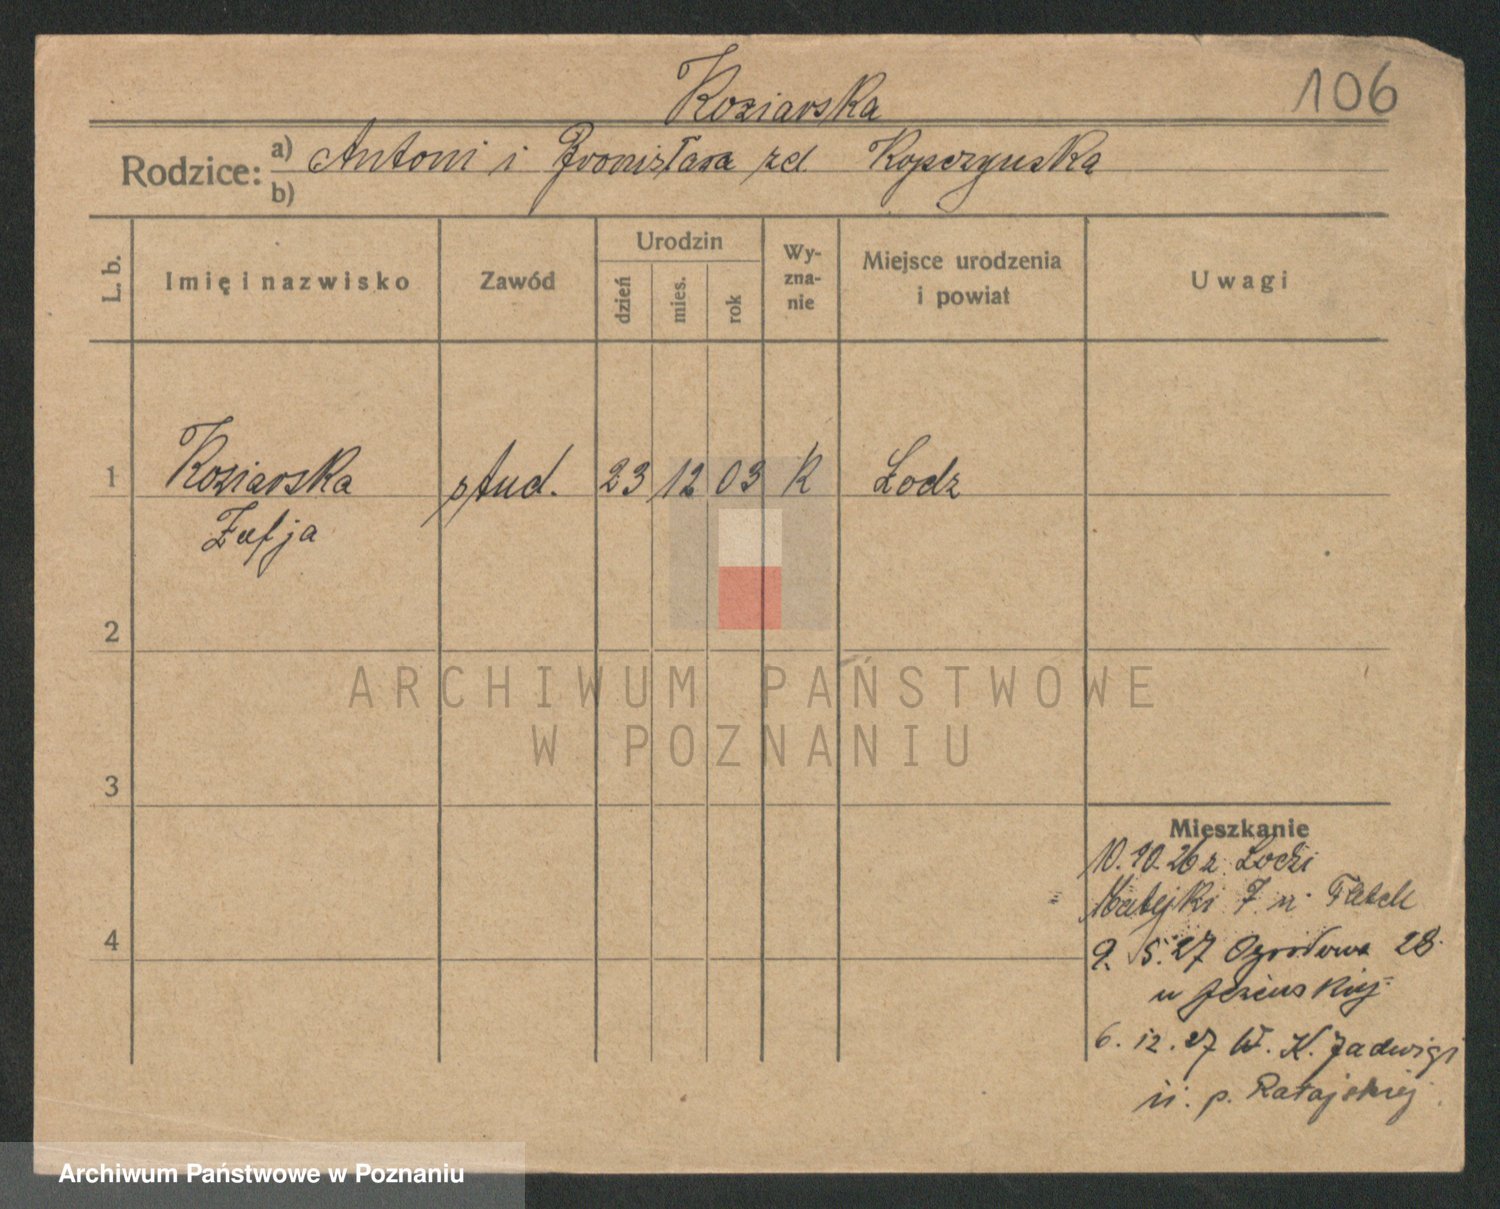 Koziarska
106
Rodzice: a) Antoni i Bronisława zd Kopczynska
b)
L. b. Imię i nazwisko Zawód Urodzin dzień mies. rok Wyzna-nie Miejsce urodzenia i powiat Uwagi
1 Koziarska stud. 23 12 03 R Łodz
Zofja
2
ARCHIWUM PAŃSTWOWE
W POZNANIU
3
Mieszkanie
10.10.26 z Łodzi
Matejki 7 u
4
9. 5.27 Ogrodowa 28
u
6. 12. 27 W. K. Jadwigi
u. p. Ratajskiej
Archiwum Państwowe w Poznaniu